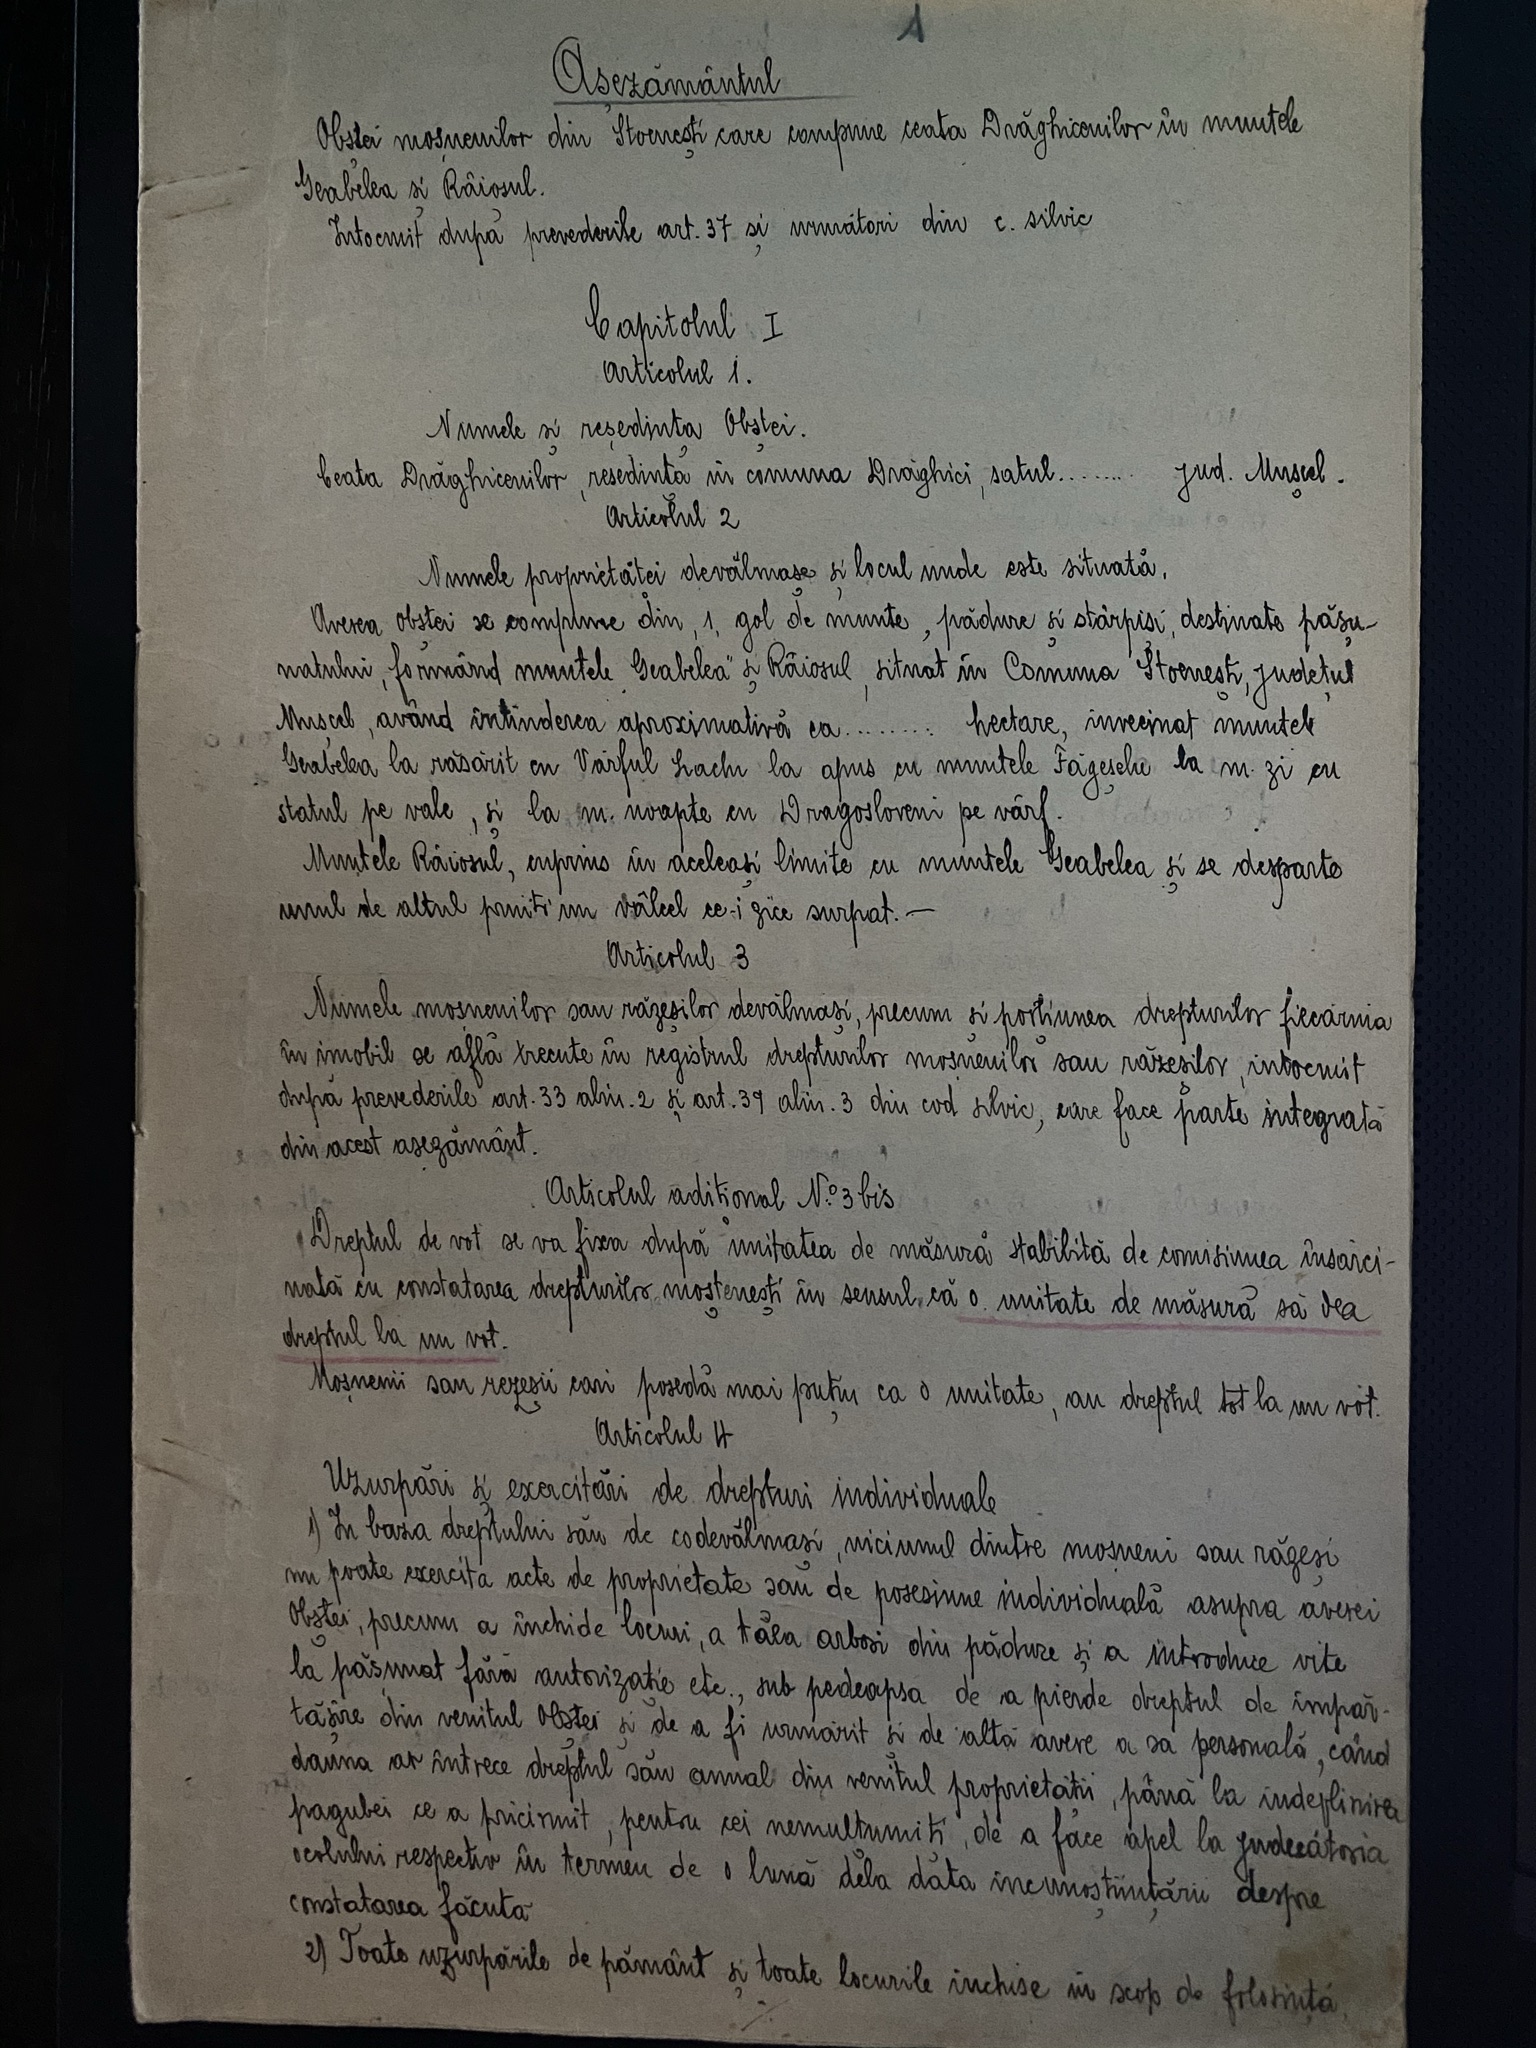 1
Așezământul
Obștei moșnenilor din Stoenești care compune ceata Drăghicenilor în muntele
Geabelea și Râiosul.
Intocmit după prevederile art. 37 și următori din c. silvic
Capitolul I
Articolul 1.
Numele și reședința Obștei.
Ceata Drăghicenilor, resedintă in comuna Drăghici, satul........ jud. Mușcel.
Articolul 2
Numele proprietăței devălmașe și locul unde este situată.
Averea obștei se compune din, 1, gol de munte, pădure și stârpiși, destinate pășu-
natului, formând muntele „Geabelea" și Râiosul, situat în Comuna Stoenești, județul
Mușcel, având întinderea aproximativă ca........ hectare, invecinat muntele
Geabelea la răsărit cu Vârful Lachi la apus cu muntele Făgețelu la m. zi cu
statul pe vale, și la m. noapte cu Dragosloveni pe vârf.
Muntele Râiosul, cuprins în aceleași limite cu muntele Geabelea și se desparte
unul de altul printr'un vâlcel ce-i zice surpat. —
Articolul 3
Numele mosnenilor sau răzeșilor devălmași, precum si portiunea drepturilor fiecăruia
în imobil se află trecute în registrul drepturilor moșnenilor sau răzeșilor, intocmit
după prevederile art. 33 alin. 2 și art. 39 alin. 3 din cod silvic, care face parte integrată
din acest așezământ.
Articolul aditional No. 3 bis
Dreptul de vot se va fixa după unitatea de măsură stabilită de comisiunea însărci-
nată cu constatarea drepturilor moștenești în sensul, că o unitate de măsură să dea
dreptul la un vot.
Moșnenii sau rezeșii cari posedă mai puțin ca o unitate, au dreptul tot la un vot.
Articolul 4
Uzurpări și exercitări de drepturi individuale
1) In baza dreptului său de codevălmași, niciunul dintre moșneni sau răzeși
nu poate exercita acte de proprietate sau de posesiune individuală asupra averei
Obștei, precum a închide locuri, a tăea arbori din pădure și a introduce vite
la pășunat fără autorizatie etc., sub pedeapsa de a pierde dreptul de împăr-
tășire din venitul Obștei și de a fi urmărit si de altă avere a sa personală, când
dauna ar întrece dreptul său anual din venitul proprietății, până la indeplinirea
pagubei ce a pricinuit, pentru cei nemultumiti, de a face apel la judecătoria
ocolului respectiv în termen de o lună dela data incunoștiințării despre
constatarea făcută
2) Toate uzurpările de pământ și toate locurile inchise in scop de folosință